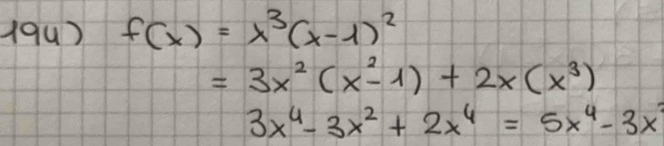 194) f(x) = x³(x-1)²
= 3x² (x²-1) + 2x(x³)
3x⁴ - 3x² + 2x⁴ = 5x⁴ - 3x²